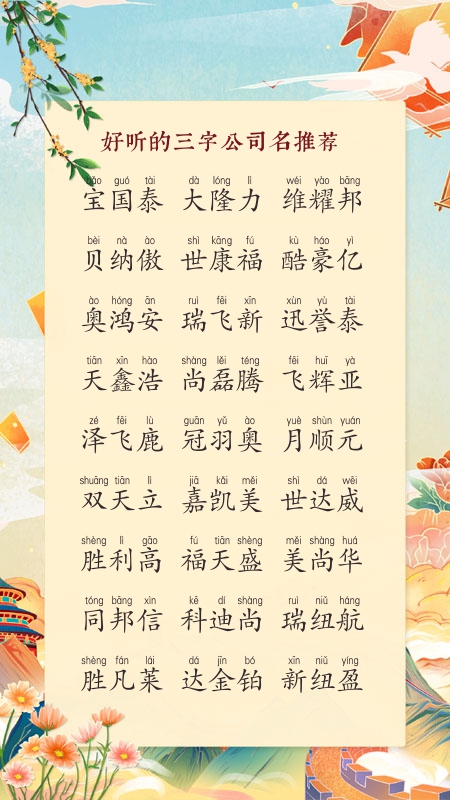 好听的三字公司名推荐
bǎo guó tài dà lóng lì wéi yào bāng
宝国泰 大隆力 维耀邦
bèi nà ào shì kāng fú kù háo yì
贝纳傲 世康福 酷豪亿
ào hóng ān ruì fēi xīn xùn yù tài
奥鸿安 瑞飞新 迅誉泰
tiān xīn hào shàng lěi téng fēi huī yà
天鑫浩 尚磊腾 飞辉亚
zé fēi lù guān yǔ ào yuè shùn yuán
泽飞鹿 冠羽奥 月顺元
shuāng tiān lì jiā kǎi měi shì dá wēi
双天立 嘉凯美 世达威
shèng lì gāo fú tiān shèng měi shàng huá
胜利高 福天盛 美尚华
tóng bāng xìn kē dí shàng ruì niǔ háng
同邦信 科迪尚 瑞纽航
shèng fán lái dá jīn bó xīn niǔ yíng
胜凡莱 达金铂 新纽盈